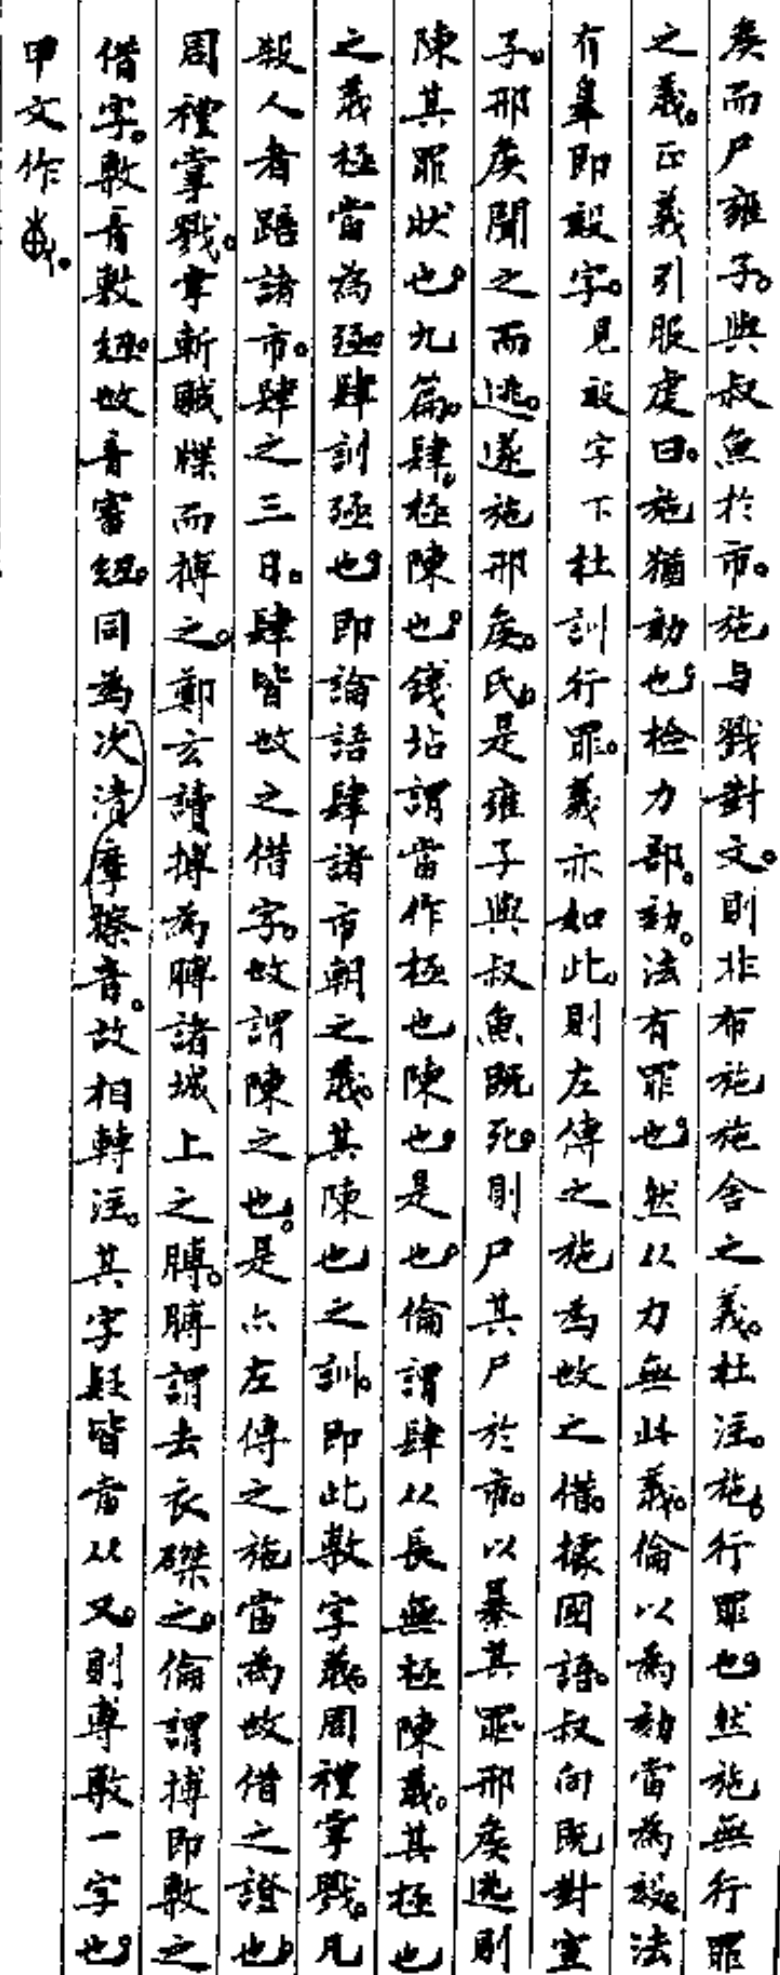 矦而尸雍子。與叔魚於市。施与戮對文。則非布施施舍之義。杜注。施,行罪也。然施無行罪
之義。正義引服虔曰。施猶劾也。檢力部。劾。法有罪也。然从力無此義。倫以為劾當為㱾。法
有辠即㱾字。見㱾字下杜訓行罪。義亦如此。則左傳之施為㪅之借。據國語。叔向既對宣
子。邢矦聞之而逃。遂施邢矦氏。是雍子與叔魚既死。則尸其尸於市。以暴其罪。邢矦逃則
陳其罪狀也。九篇。肆。極陳也。錢坫謂當作極也陳也。是也。倫謂肆从長無極陳義。其極也
之義極當為殛。肆訓殛也。即論語肆諸市朝之義。其陳也之訓。即此敷字義。周禮掌戮。凡
殺人者踣諸市。肆之三日。肆皆㪅之借字。㪅謂陳之也。是亦左傳之施當為㪅借之證也。
周禮掌戮。掌斬賊諜而搏之。鄭玄讀搏為膊諸城上之膊。膊謂去衣磔之。倫謂搏即敷之
借字。敷音敷紐。㪅音審紐。同為次清摩擦音。故相轉注。其字疑皆當从又。則尃敷一字也。
甲文作